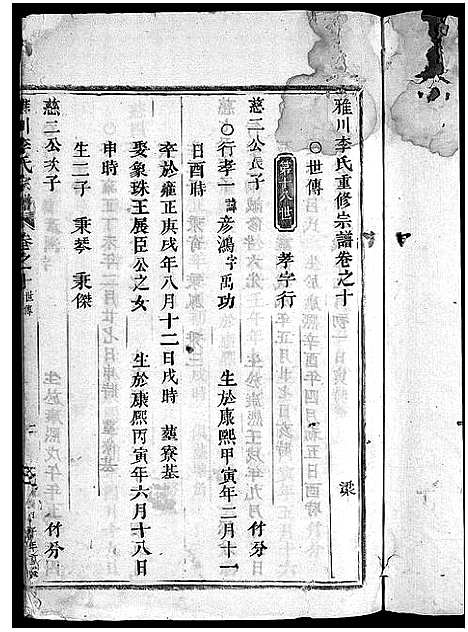 雅川李氏重修宗譜卷之十
梁
○世傳
第十八世
孝字行
慈二公長子
付分
○行孝一諱彦鴻字禹功
生於康熙甲寅年二月十一
日酉時
卒於雍正庚戌年八月十二日戌時
塟寮基
娶象珠王展臣公之女
生於康熙丙寅年六月十八日
申時
生二子
秉琴
秉傑
慈二公次子
付分
雅川李氏宗譜
卷之十
世傳